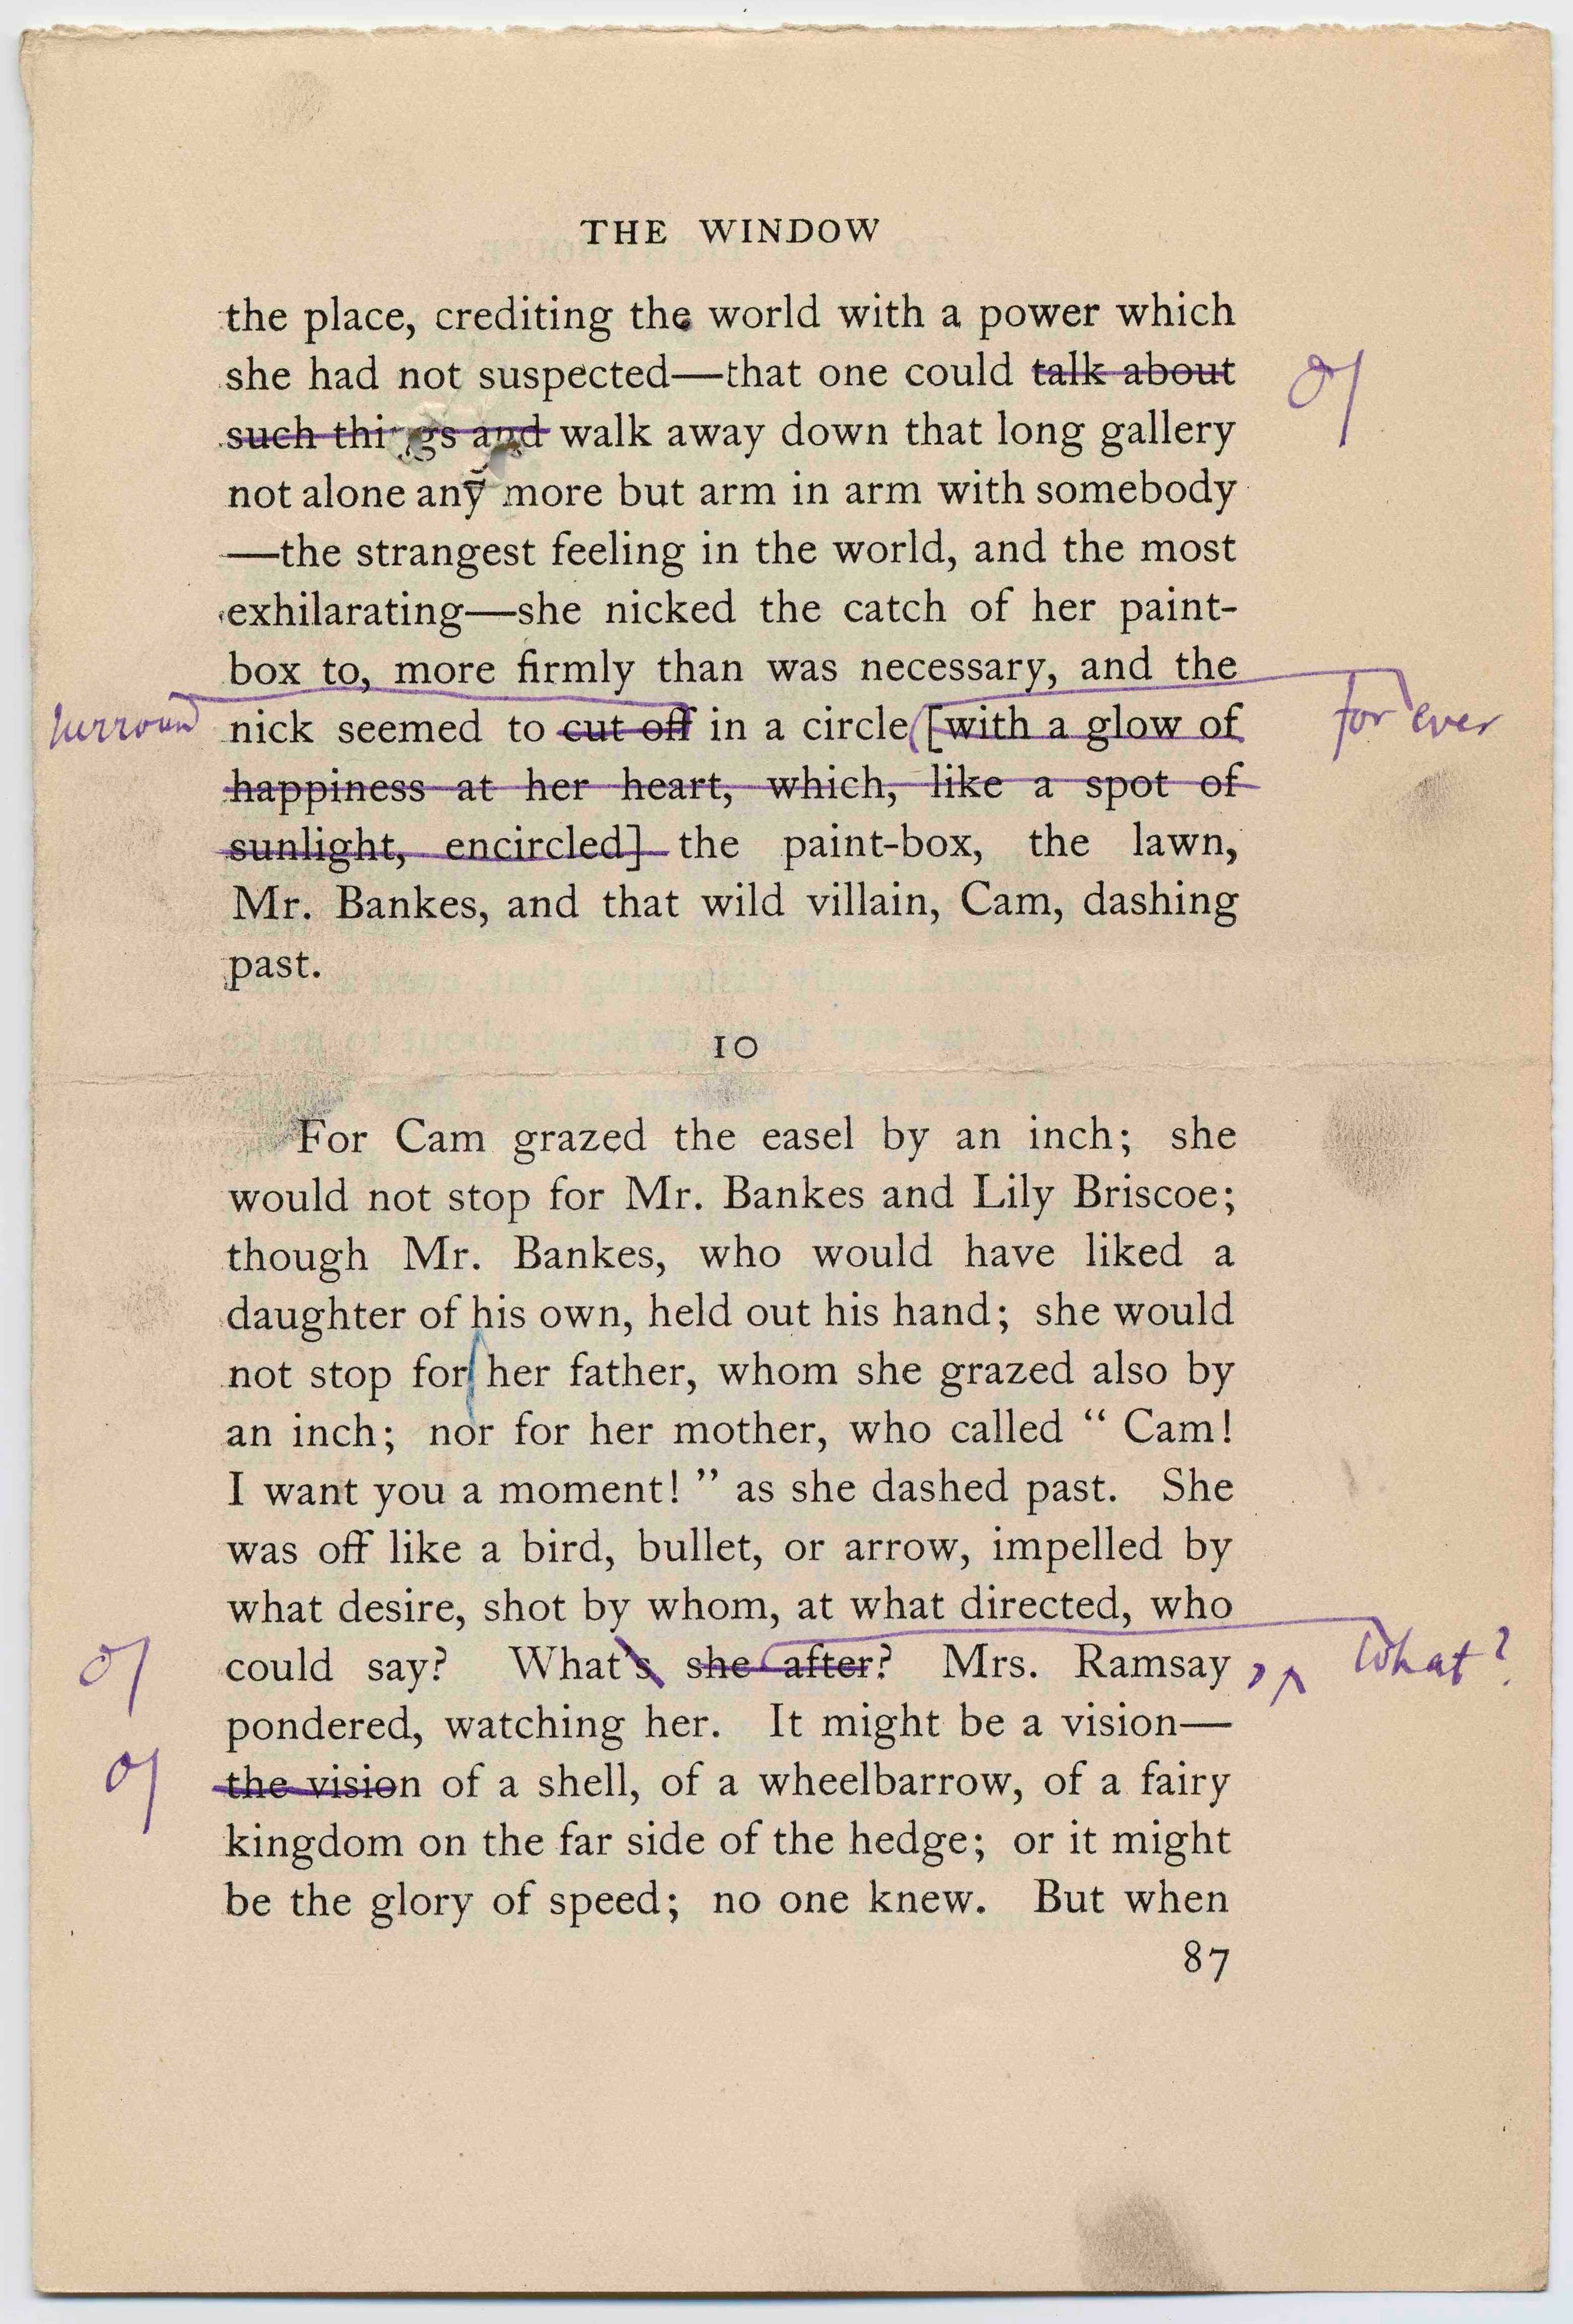 THE WINDOW
the place, crediting the world with a power which
she had not suspected—that one could talk about
such things and walk away down that long gallery
not alone any more but arm in arm with somebody
—the strangest feeling in the world, and the most
exhilarating—she nicked the catch of her paint-
box to, more firmly than was necessary, and the
surround nick seemed to cut off in a circle [with a glow of for ever
happiness at her heart, which, like a spot of
sunlight, encircled] the paint-box, the lawn,
Mr. Bankes, and that wild villain, Cam, dashing
past.
10
For Cam grazed the easel by an inch; she
would not stop for Mr. Bankes and Lily Briscoe;
though Mr. Bankes, who would have liked a
daughter of his own, held out his hand; she would
not stop for her father, whom she grazed also by
an inch; nor for her mother, who called “ Cam!
I want you a moment! ” as she dashed past. She
was off like a bird, bullet, or arrow, impelled by
what desire, shot by whom, at what directed, who
could say? What's she after? Mrs. Ramsay , What?
pondered, watching her. It might be a vision—
the vision of a shell, of a wheelbarrow, of a fairy
kingdom on the far side of the hedge; or it might
be the glory of speed; no one knew. But when
87